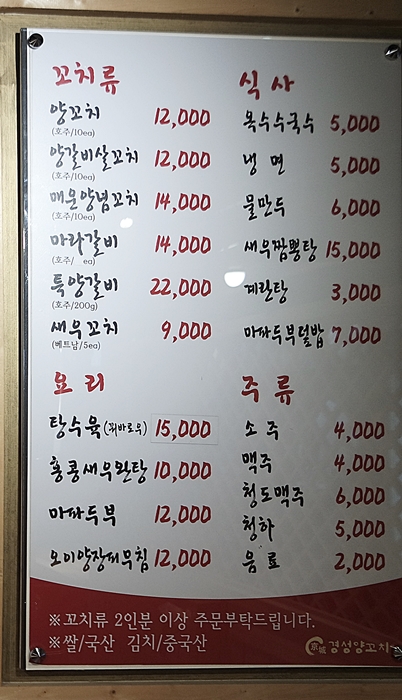 꼬치류
양꼬치 12,000
(호주/10ea)
양갈비살꼬치 12,000
(호주/10ea)
매운양념꼬치 14,000
(호주/10ea)
마라갈비 14,000
(호주/ ea)
특양갈비 22,000
(호주/200g)
새우꼬치 9,000
(베트남/5ea)
요리
탕수육(꿔바로우) 15,000
홍콩새우완탕 10,000
마파두부 12,000
오이양장피무침 12,000
식사
옥수수국수 5,000
냉면 5,000
물만두 6,000
새우짬뽕탕 15,000
계란탕 3,000
마파두부덮밥 7,000
주류
소주 4,000
맥주 4,000
청도맥주 6,000
청하 5,000
음료 2,000
※꼬치류 2인분 이상 주문부탁드립니다.
※쌀/국산 김치/중국산
경성양꼬치